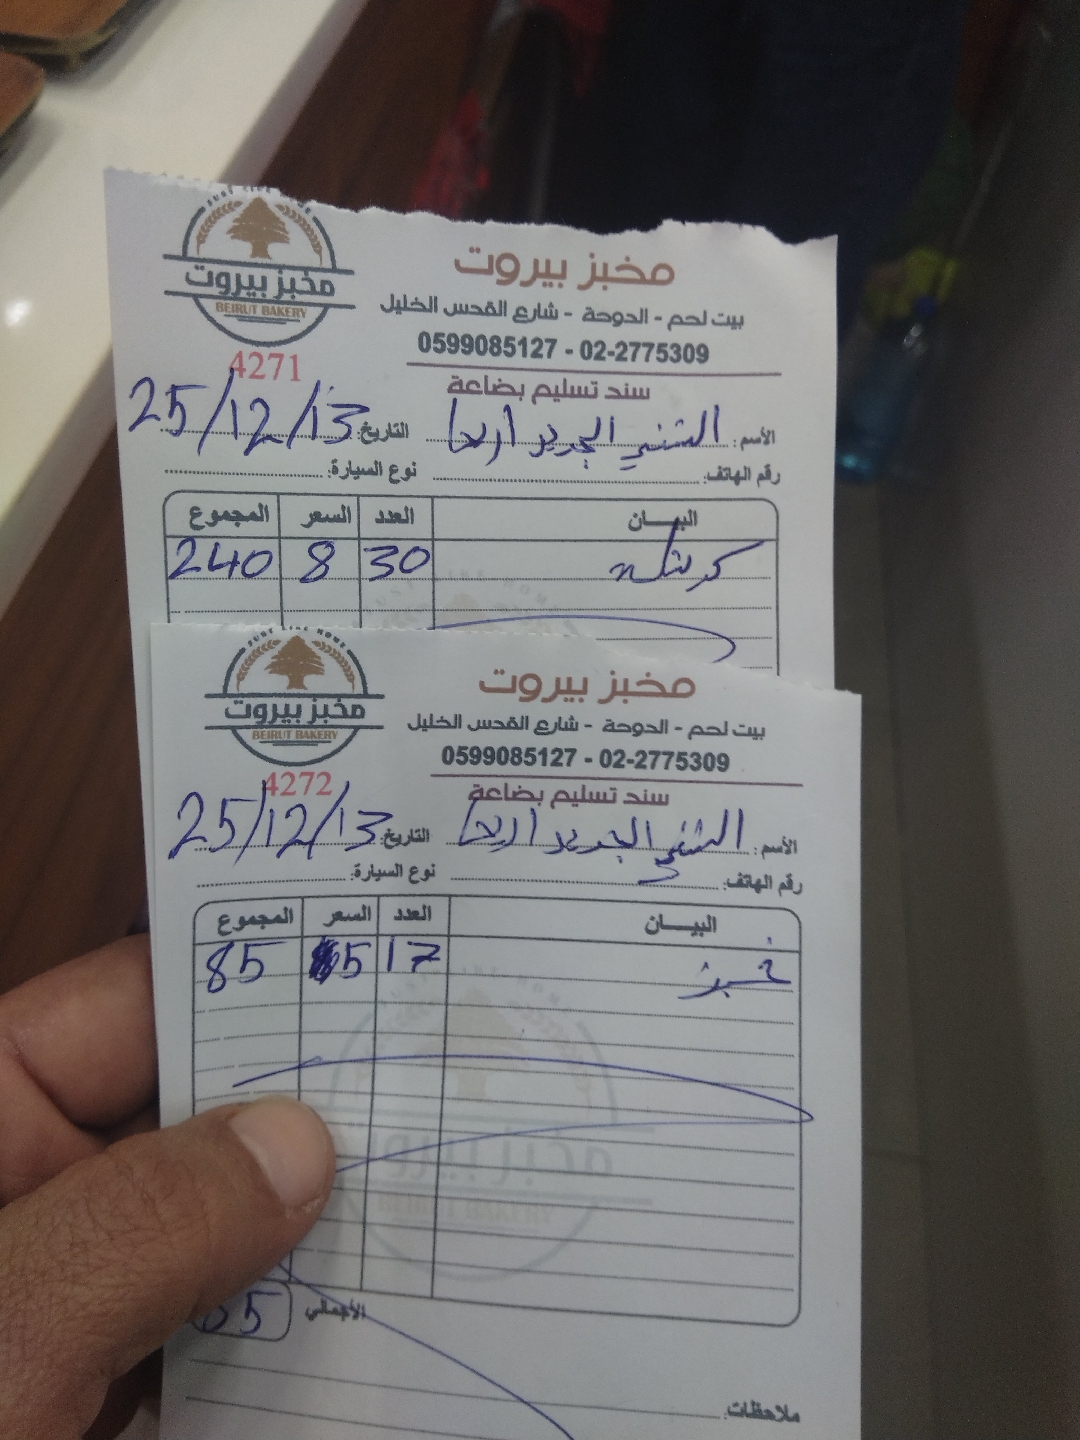 JUST LIKE HOME
مخبز بيروت
BEIRUT BAKERY
مخبز بيروت
بيت لحم - الدوحة - شارع القدس الخليل
0599085127 - 02-2775309
4271
سند تسليم بضاعة
الأسم: الشني الجديد اريحا
التاريخ: 25/12/13
رقم الهاتف:
نوع السيارة:
البيـــان العدد السعر المجموع
30 8 240
JUST LIKE HOME
مخبز بيروت
BEIRUT BAKERY
مخبز بيروت
بيت لحم - الدوحة - شارع القدس الخليل
0599085127 - 02-2775309
4272
سند تسليم بضاعة
الأسم: الشني الجديد اريحا
التاريخ: 25/12/13
رقم الهاتف:
نوع السيارة:
البيـــان العدد السعر المجموع
خبز 17 5 85
مخبز بيروت
BEIRUT BAKERY
الأجمالي
ملاحظات: